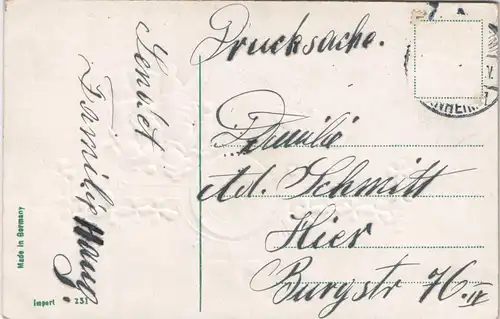 Sendet
Familie
Drucksache.
Familie
Ad. Schmitt
Hier
Burgstr 76. IV
Made in Germany
Import 231